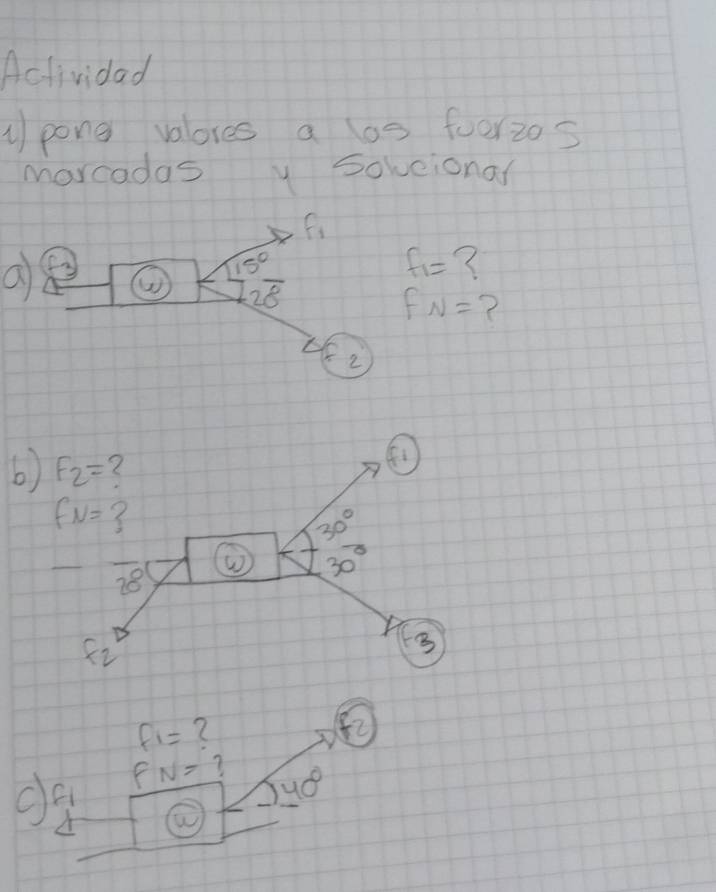 Actividad
1) pong valores a las fuerzas
marcadas y Solucionar
a) f3 w f1
15°
28
f2
f1 = ?
fN = ?
b) F2 = ?
fN = ?
f1
30°
w
30°
28
f2
f3
f1 = ?
fN = ?
f2
40°
c) f1
w